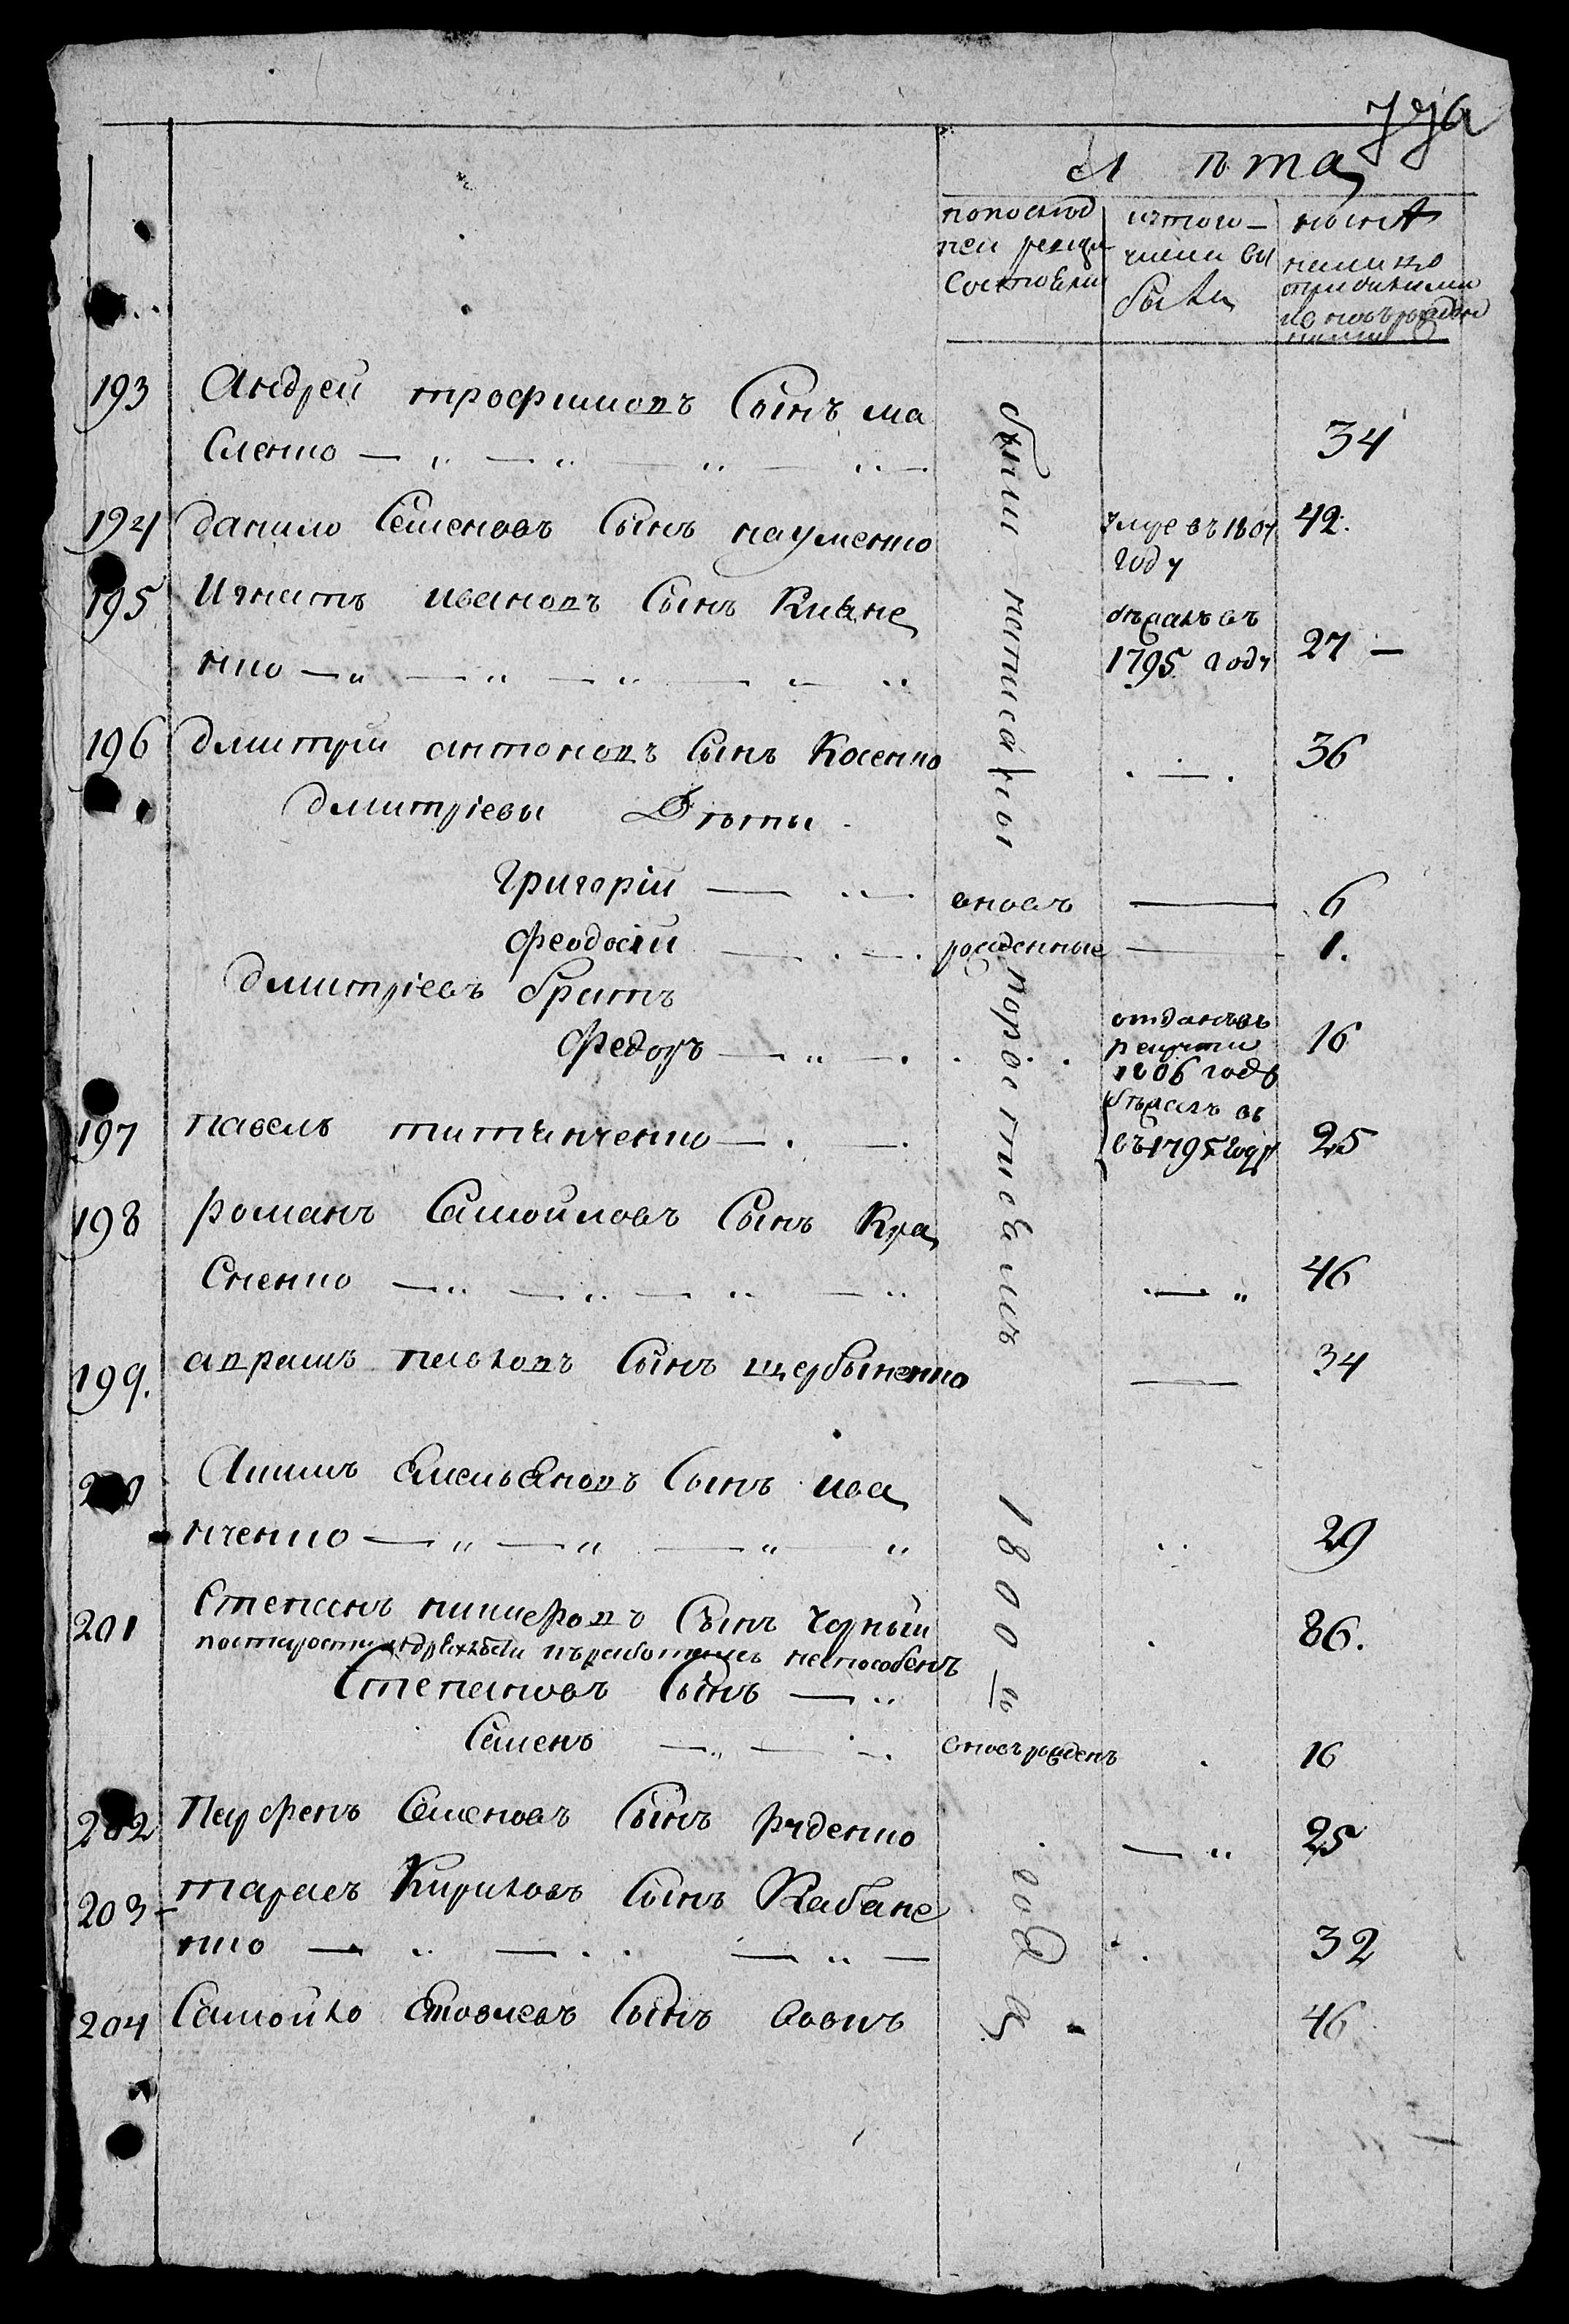 лѣта
по послѣд
ней ревизи
состояли
ис того
числа вы
были
нынѣ
193 Андрей трофимовъ Сынъ ма
сленко 34
194 данило Семеновъ Сынъ науменко умре въ 1807 году 42.
195 Игнатъ ивановъ Сынъ Кияне
нко бѣжалъ въ 1795 году 27
196 дмитрий антоновъ Сынъ Косенко 36
дмитріевы Дѣти
Григорій вновь 6
феодосій рожденные 1.
дмитріевъ братъ
Федоръ отданъ въ рекруты 1806 года 16
197 павелъ титаиченко бѣжалъ въ въ 1795 году 25
198 романъ Самойловъ Сынъ Кра
сненко 46
199. аврамъ павловъ Сынъ щербыненко 34
200 Акимъ Емельяновъ Сынъ ива
нченко 29
201 Степанъ никифоровъ Сынъ Чорный 86.
по старости и дряхлости къ работамъ неспособенъ
Степановъ Сынъ
Семенъ вновь рожденъ 16
202 Парфенъ Семеновъ Сынъ руденко 25
203 тарасъ Кириловъ Сынъ Кабане
нко 32
204 Самойло Яковлевъ Сынъ вовкъ 46
были написаны
1800 го
года